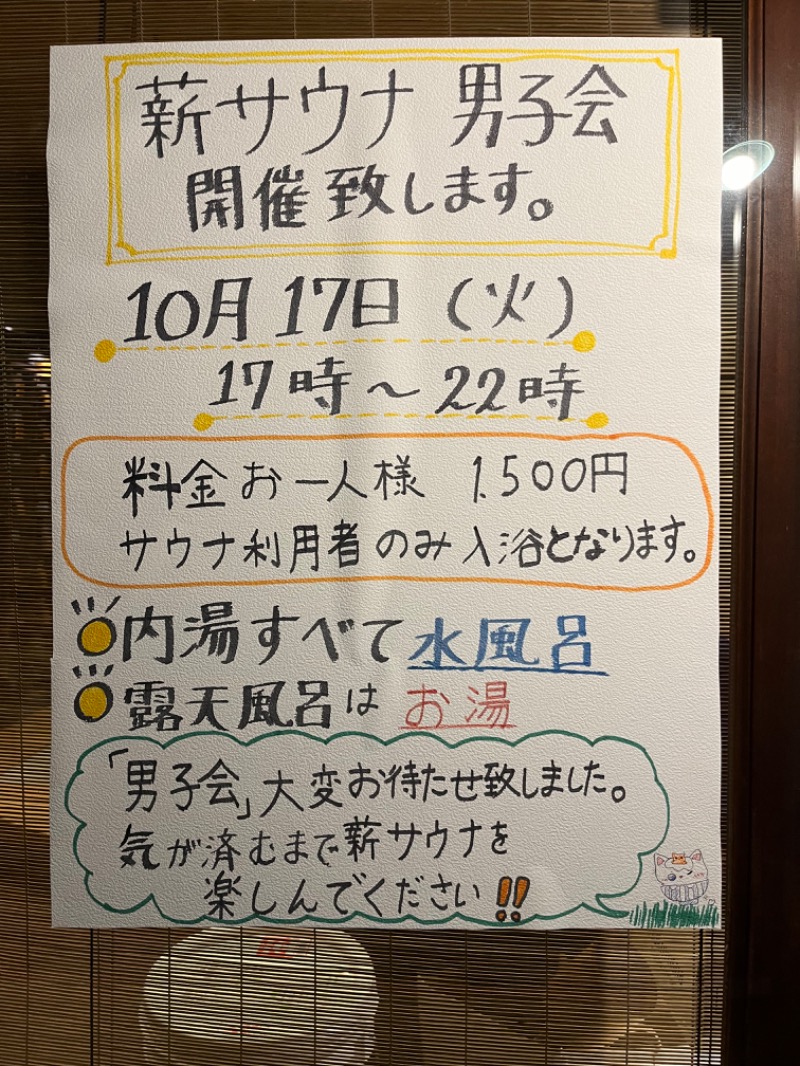 薪サウナ 男子会
開催致します。
10月17日（火）
17時～22時
料金お一人様 1,500円
サウナ利用者のみ入浴となります。
内湯すべて水風呂
露天風呂はお湯
「男子会」大変お待たせ致しました。
気が済むまで薪サウナを
楽しんでください!!